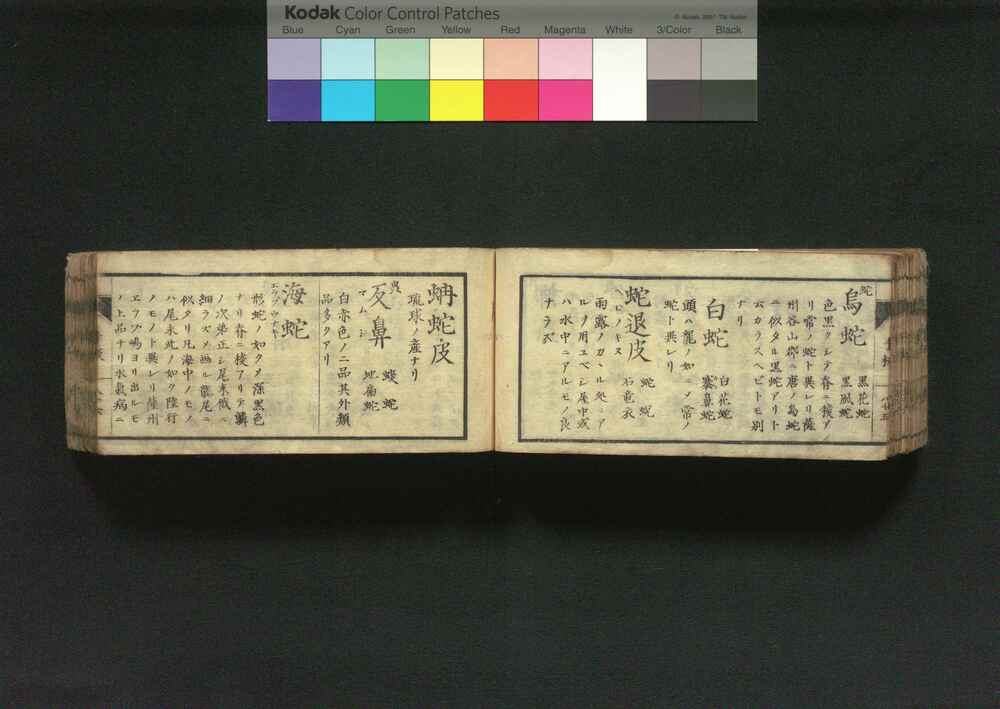 Kodak Color Control Patches
© Kodak, 2007 TM: Kodak
Blue Cyan Green Yellow Red Magenta White 3/Color Black
蛇
烏蛇 黒花蛇
黒風蛇
色黒クシテ脊ニ稜ア
リ常ノ蛇ト異レリ薩
州谷山郷ニ唐ノ烏蛇
ニ似タル黒蛇アリト
云カラスヘビトモ別
ナリ
白蛇 白花蛇
褰鼻蛇
頭ハ龍ノ如ニノ常ノ
蛇ト異レリ
蛇退皮 蛇蛻
石竜衣
ヘビノキヌ
雨露ノカヽル処ニア
ルモノ用ユベシ屋中或
ハ水中ニアルモノ良
ナラズ
蚺蛇皮
琉球ノ産ナリ
異
反鼻 蝮蛇
地扁蛇
マムシ
白赤色ノ二品其外類
品多クアリ
海蛇
エラブウナギ
形蛇ノ如クメ深黒色
ナリ脊ニ稜アリテ鱗
ノ次第正シ尾末幟ニ
細ラズメ画ル龍尾ニ
似タリ凡海中ノモノ
ハ尾末此ノ如ク陸行
ノモノト異レリ薩州
エラブ嶋ヨリ出ルモ
ノ上品ナリ水氣病ニ